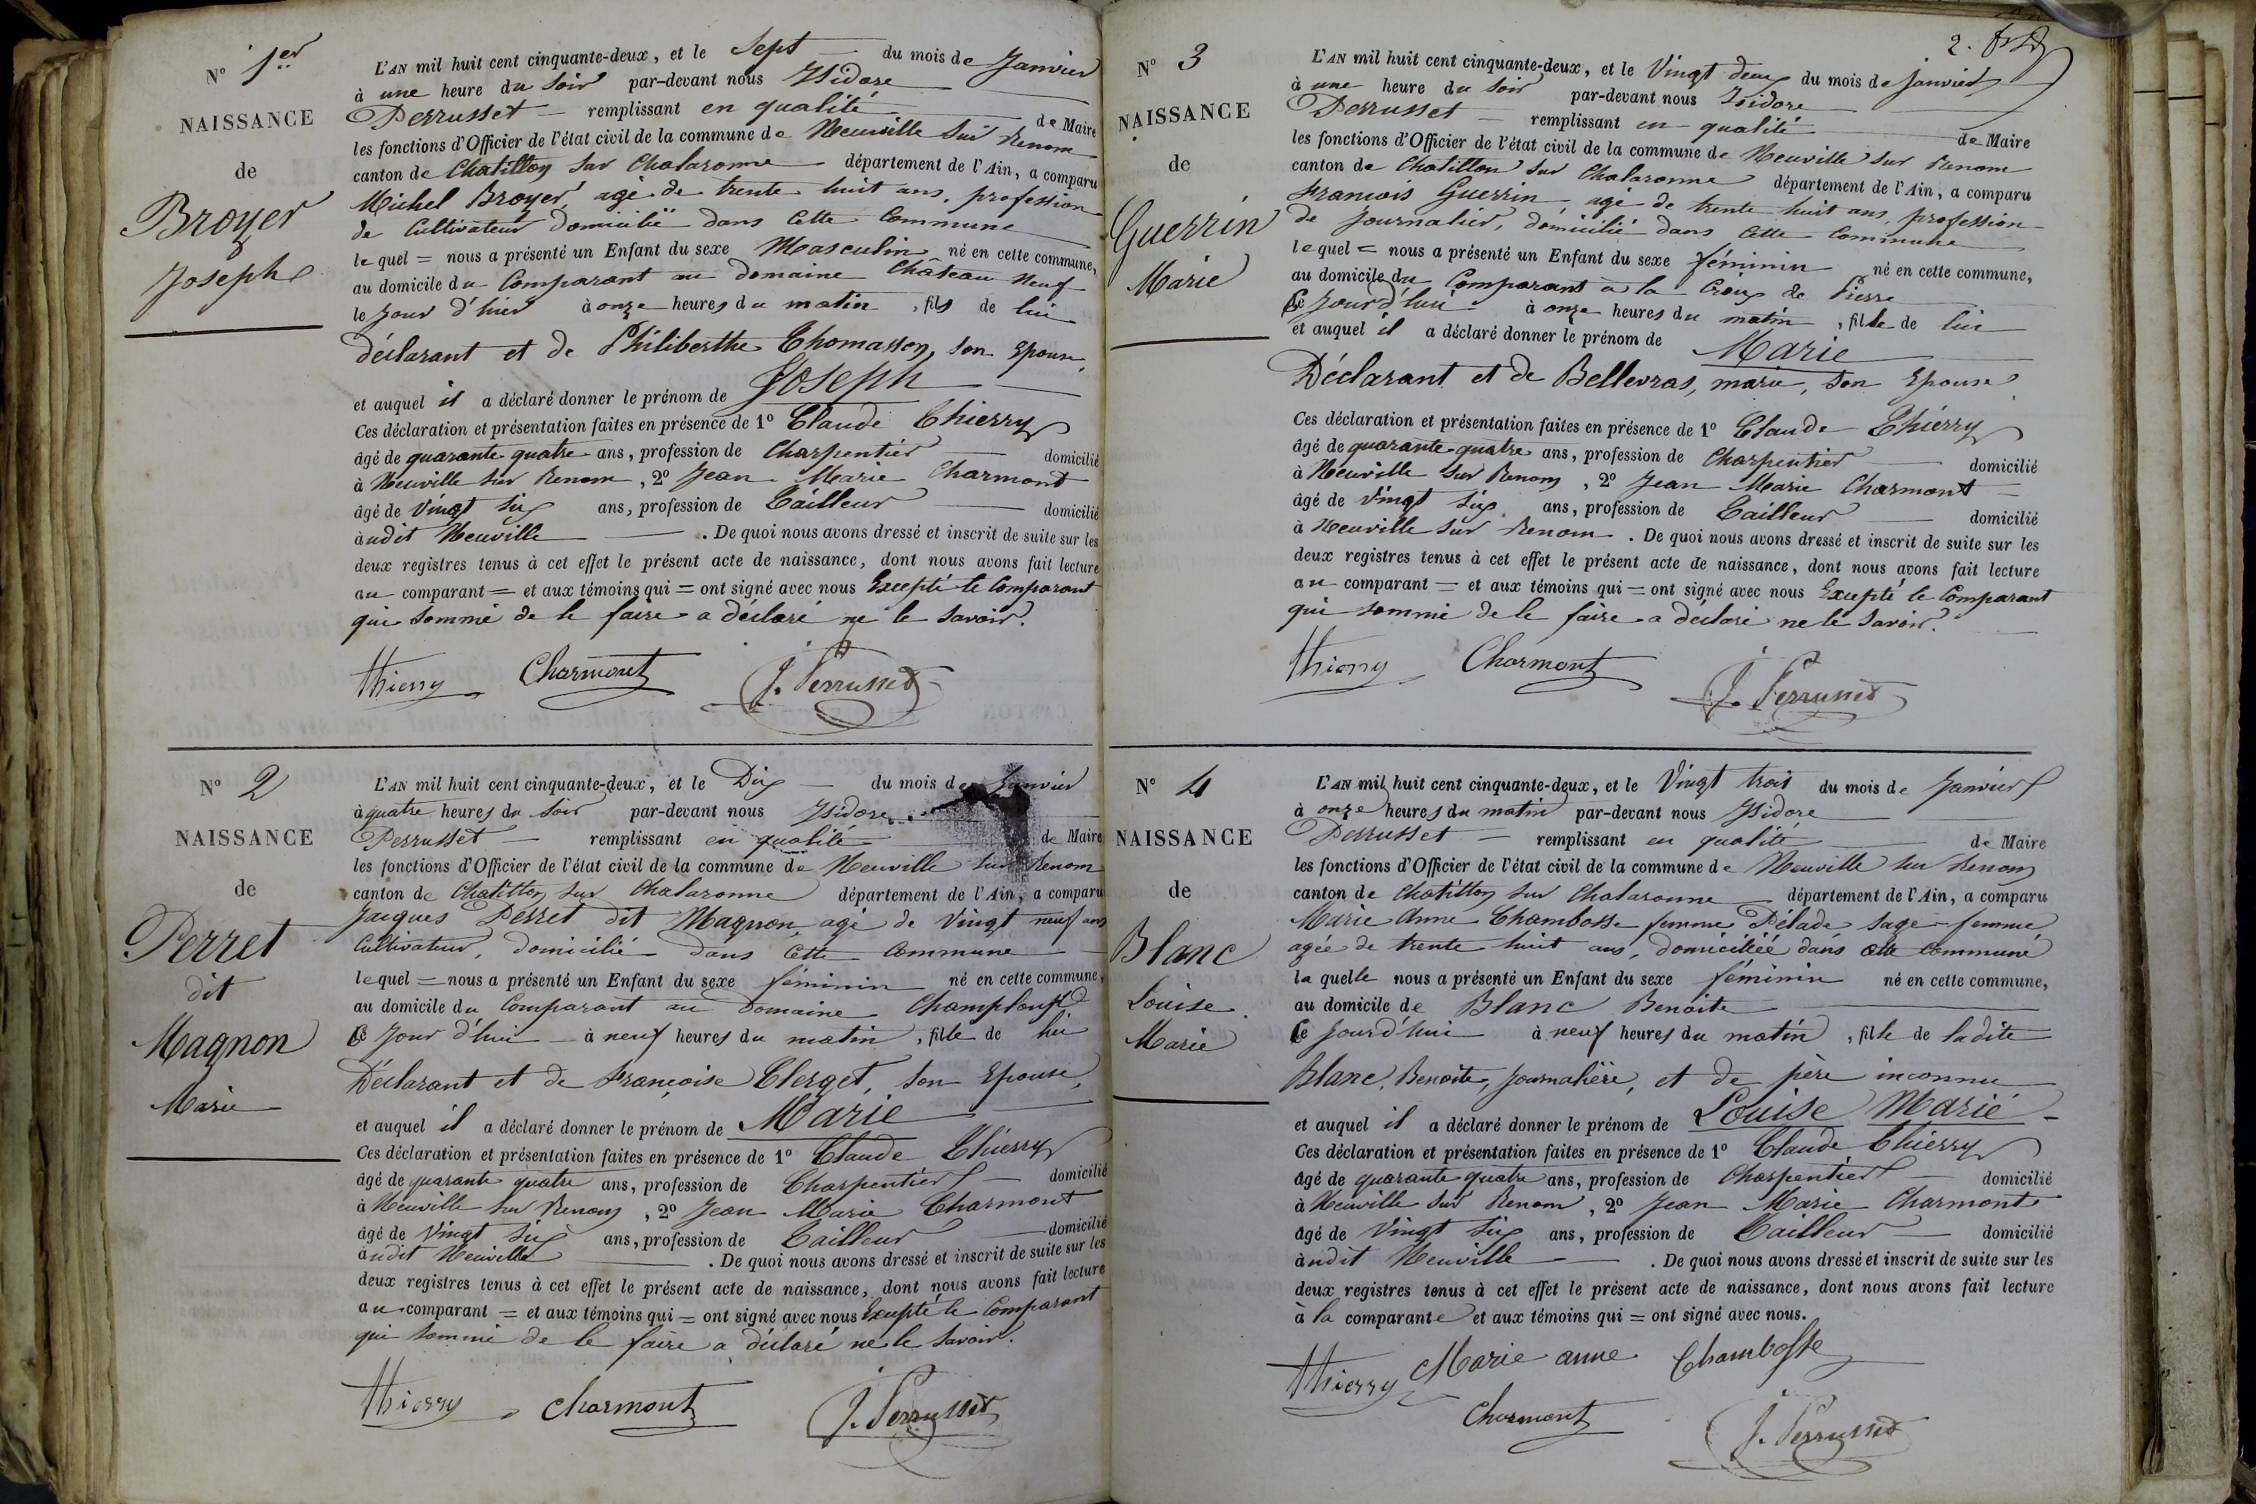 N° 1er
NAISSANCE
de
Broyer
Joseph
L'AN mil huit cent cinquante-deux, et le Sept du mois de Janvier
à une heure du Soir par-devant nous Isidore
Perrusset remplissant en qualité de Maire
les fonctions d'Officier de l'état civil de la commune de Neuville sur Renom
canton de Chatillon sur Chalaronne département de l'Ain, a comparu
Michel Broyer, agé de trente huit ans, profession
de Cultivateur domicilié dans cette Commune
le quel = nous a présenté un Enfant du sexe Masculin né en cette commune,
au domicile du Comparant au domaine Château Neuf
le Jour d'hier à onze heures du matin, fils de lui
déclarant et de Philiberthe Thomasson, son Epouse,
et auquel il a déclaré donner le prénom de Joseph
Ces déclaration et présentation faites en présence de 1° Claude Thierry
âgé de quarante quatre ans, profession de Charpentier domicilié
à Neuville sur Renom, 2° Jean Marie Charmont
âgé de Vingt Six ans, profession de Tailleur domicilié
audit Neuville. De quoi nous avons dressé et inscrit de suite sur les
deux registres tenus à cet effet le présent acte de naissance, dont nous avons fait lecture
au comparant = et aux témoins qui = ont signé avec nous Excepté le Comparant
qui sommé de le faire a déclaré ne le savoir.
Thierry Charmont J. Perrusset
N° 2
NAISSANCE
de
Perret
dit
Magnon
Marie
L'AN mil huit cent cinquante-deux, et le Dix du mois de Janvier
à quatre heures du Soir par-devant nous Isidore
Perrusset remplissant en qualité de Maire
les fonctions d'Officier de l'état civil de la commune de Neuville sur Renom
canton de Chatillon sur Chalaronne département de l'Ain, a comparu
Jacques Perret dit Magnon, agé de Vingt neuf ans
Cultivateur, domicilié dans cette Commune
le quel = nous a présenté un Enfant du sexe féminin né en cette commune,
au domicile du Comparant au Domaine Champlouf
Ce Jour d'hui à neuf heures du matin, fille de lui
Déclarant et de Françoise Clerget, son Epouse,
et auquel il a déclaré donner le prénom de Marie
Ces déclaration et présentation faites en présence de 1° Claude Thierry
âgé de quarante quatre ans, profession de Charpentier domicilié
à Neuville sur Renom, 2° Jean Marie Charmont
âgé de Vingt Six ans, profession de Tailleur domicilié
audit Neuville. De quoi nous avons dressé et inscrit de suite sur les
deux registres tenus à cet effet le présent acte de naissance, dont nous avons fait lecture
au comparant = et aux témoins qui = ont signé avec nous Excepté le Comparant
qui sommé de le faire a déclaré ne le savoir.
Thierry Charmont J. Perrusset
2.
N° 3
NAISSANCE
de
Guerrin
Marie
L'AN mil huit cent cinquante-deux, et le Vingt deux du mois de Janvier
à une heure du Soir par-devant nous Isidore
Perrusset remplissant en qualité de Maire
les fonctions d'Officier de l'état civil de la commune de Neuville sur Renom
canton de Chatillon sur Chalaronne département de l'Ain, a comparu
Francois Guerrin, agé de trente huit ans, profession
de Journalier, domicilié dans cette Commune
le quel = nous a présenté un Enfant du sexe féminin né en cette commune,
au domicile du Comparant à la Croix de Pierre
Ce Jour d'hui à onze heures du matin, fille de lui
et auquel il a déclaré donner le prénom de Marie
Déclarant et de Bellevras, marie, son Epouse,
Ces déclaration et présentation faites en présence de 1° Claude Thierry
âgé de quarante quatre ans, profession de Charpentier domicilié
à Neuville sur Renom, 2° Jean Marie Charmont
âgé de Vingt Six ans, profession de Tailleur domicilié
à Neuville sur Renom. De quoi nous avons dressé et inscrit de suite sur les
deux registres tenus à cet effet le présent acte de naissance, dont nous avons fait lecture
au comparant = et aux témoins qui = ont signé avec nous Excepté le Comparant
qui sommé de le faire a déclaré ne le savoir.
Thierry Charmont J. Perrusset
N° 4
NAISSANCE
de
Blanc
Louise
Marie
L'AN mil huit cent cinquante-deux, et le Vingt trois du mois de Janvier
à onze heures du matin par-devant nous Isidore
Perrusset remplissant en qualité de Maire
les fonctions d'Officier de l'état civil de la commune de Neuville sur Renom
canton de Chatillon sur Chalaronne département de l'Ain, a comparu
Marie Anne Chambosse femme Pélade, sage-femme
agée de trente huit ans, domiciliée dans cette Commune
la quelle nous a présenté un Enfant du sexe féminin né en cette commune,
au domicile de Blanc Benoite
Ce Jourd'hui à neuf heures du matin, fille de ladite
Blanc, Benoite, journalière, et de père inconnu
et auquel il a déclaré donner le prénom de Louise Marie
Ces déclaration et présentation faites en présence de 1° Claude Thierry
âgé de quarante quatre ans, profession de Charpentier domicilié
à Neuville sur Renom, 2° Jean Marie Charmont
âgé de Vingt Six ans, profession de Tailleur domicilié
audit Neuville. De quoi nous avons dressé et inscrit de suite sur les
deux registres tenus à cet effet le présent acte de naissance, dont nous avons fait lecture
à la comparante et aux témoins qui = ont signé avec nous.
Thierry Marie anne Chambosse
Charmont J. Perrusset